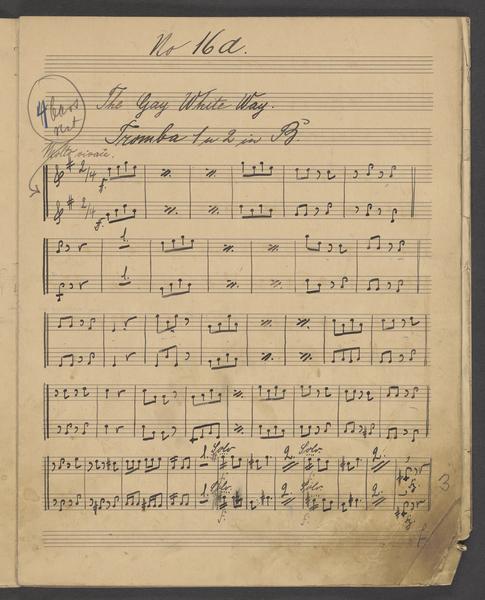 No 16d.
4 bars
rest
The Gay White Way.
Tromba 1 u 2 in B.
Molto vivace.
2/4 f.
2/4 f.
1.
1.
Solo. Solo.
1. 2. 2.
Solo. Solo.
1. 2. 2.
f. f.
3